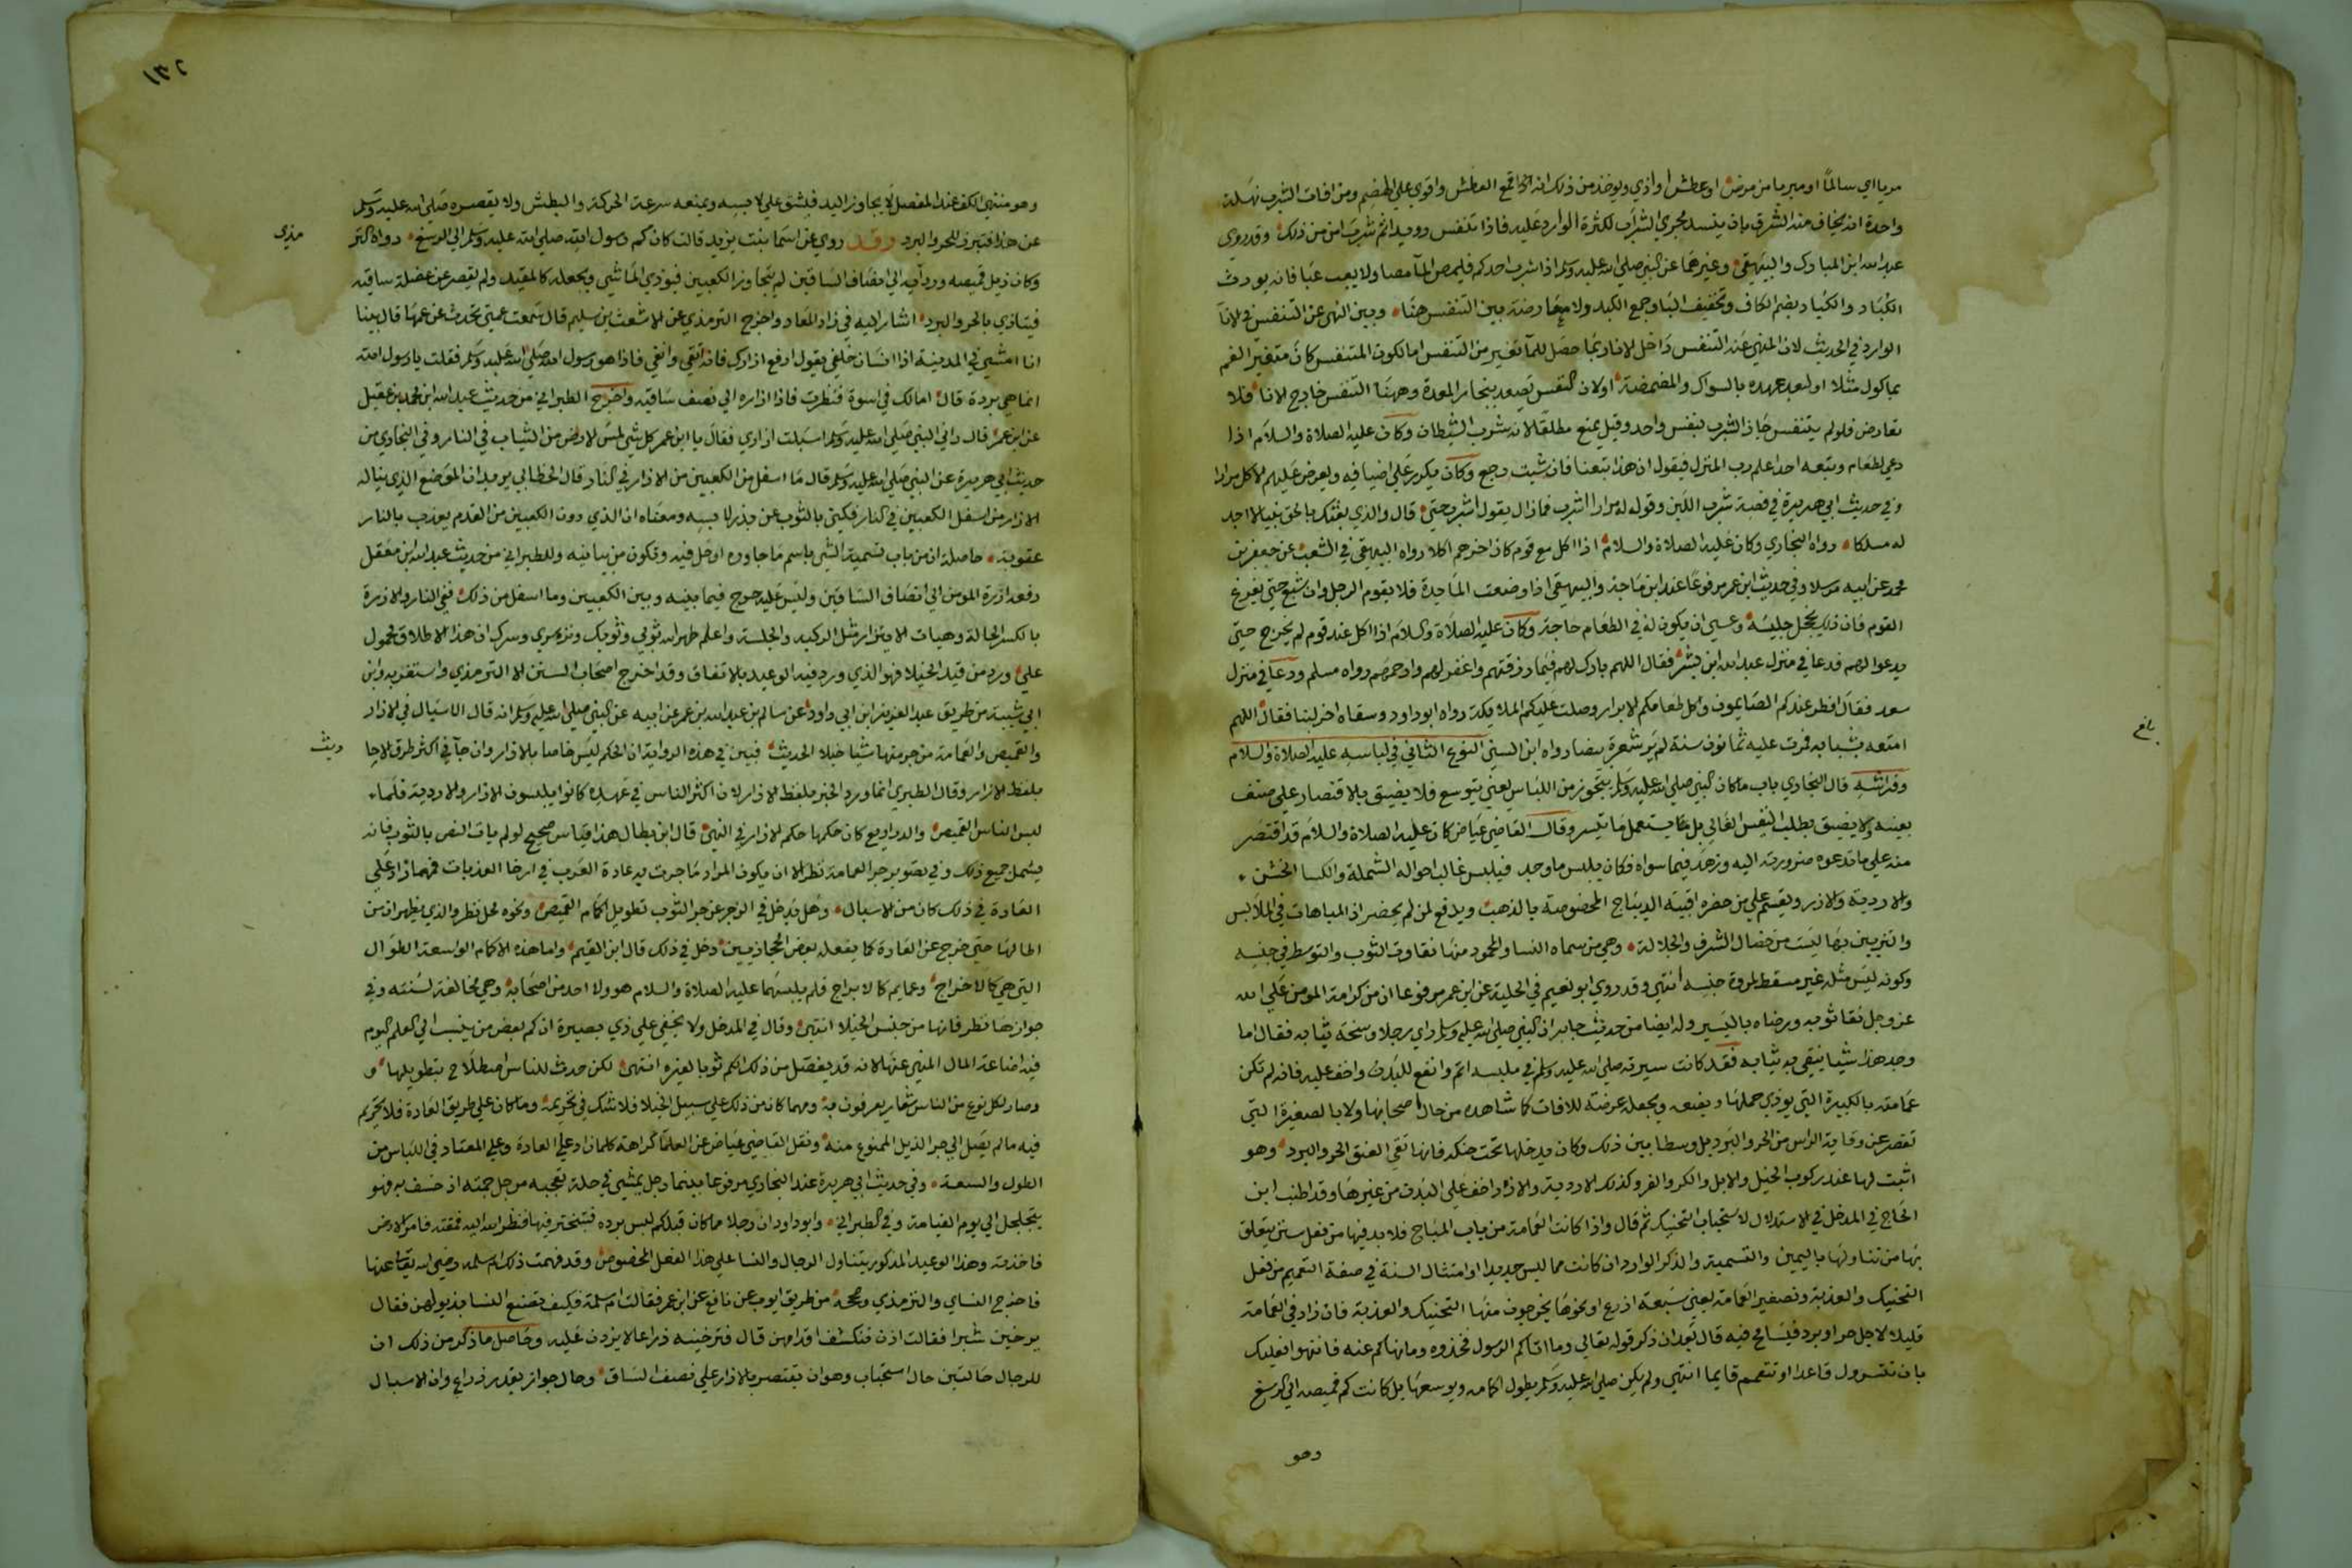 مريا اي سالما او مبريا من مرض او عطش او اذي ويوخذ من ذلك انه اقمع العطش واقوي علي الهضم ومن افات الشرب نهلة
واحدة انه يخاف منه الشرق بان ينسد مجري الشراب لكثرة الوارد عليه فاذا تنفس رويدا ثم شرب امن من ذلك وقد روي
عبد الله ابن المبارك والبيهقي وغيرهما عن النبي صلي الله عليه وسلم اذا شرب احدكم فليمص الما مصا ولا يعب عبا فانه يورث
الكباد والكباد بضم الكاف وتخفيف البا وجع الكبد ولا معارضة بين التنفس هنا وبين النهي عن التنفس في الانا
الوارد في الحديث لان المنهي عنه التنفس داخل الانا ربما حصل للما تغير من التنفس اما لكون المتنفس كان متغير الفم
بماكول مثلا او لبعد عهده بالسواك والمضمضة او لان النفس يصعد ببخار المعدة وههنا التنفس خارج الانا فلا
تعارض فلو لم يتنفس جاز الشرب بنفس واحد وقيل يمنع مطلقا لانه شرب الشيطان وكان عليه الصلاة والسلام اذا
دعي لطعام وتبعه احد اعلم رب المنزل فيقول ان هذا تبعنا فان شيت رجع وكان يكرر علي اضيافه ويعرض عليهم الاكل مرارا
وفي حديث ابي هريرة في قصة شرب اللبن وقوله له مرارا اشرب فما زال يقول اشرب حتي قال والذي بعثك بالحق نبيا لا اجد
له مسلكا رواه البخاري وكان عليه الصلاة والسلام اذا اكل مع قوم كان اخرهم اكلا رواه البيهقي في الشعب عن جعفر بن
محمد عن ابيه مرسلا وفي حديث ابن عمر مرفوعا عند ابن ماجة والبيهقي اذا وضعت المايدة فلا يقوم الرجل وان شبع حتي يفرغ
القوم فان ذلك يخجل جليسه وعسي ان يكون له في الطعام حاجة وكان عليه الصلاة والسلام اذا اكل عند قوم لم يخرج حتي
يدعوا لهم فدعا في منزل عبد الله ابن بشر فقال اللهم بارك لهم فيما رزقتهم واغفر لهم وارحمهم رواه مسلم ودعا في منزل
سعد فقال افطر عندكم الصايمون واكل طعامكم الابرار وصلت عليكم الملايكة رواه ابو داود وسقاه اخر لبنا فقال اللهم
امتعه بشبابه فمرت عليه ثمانون سنة لم ير شعرة بيضا رواه ابن السني النوع الثاني في لباسه عليه الصلاة والسلام
بلغ
وفراشه قال البخاري باب ما كان النبي صلي الله عليه وسلم يتجوز من اللباس يعني يتوسع فلا يضيق بالاقتصار علي صنف
بعينه ولا يضيق بطلب النفس الغالي بل كان يستعمل ما تيسر وقال القاضي عياض كان عليه الصلاة والسلام قد اقتصر
منه علي ما تدعوه ضرورته اليه وزهد فيما سواه فكان يلبس ما وجد فيلبس غالب احواله الشملة والكسا الخشن
والاردية والازر ويقسم علي من حضره اقبية الديباج المخصوصة بالذهب ويدفع لمن لم يحضر اذ المباهات في الملابس
والتزيين بها ليست من خصال الشرف والجلالة وهي من سماه النسا والمحمود منها نقاوة الثوب والتوسط في جنسه
وكونه لبس مثله غير مسقط لمروة جنسه انتهي وقد روي ابو نعيم في الحلية عن ابن عمر مرفوعا ان من كرامة المومن علي الله
عز وجل نقا ثوبه ورضاه باليسير وله ايضا من حديث جابر ان النبي صلي الله عليه وسلم راي رجلا وسخة ثيابه فقال اما
وجد هذا شيا ينقي به ثيابه فقد كانت سيرته صلي الله عليه وسلم في ملبسه اتم وانفع للبدن واخف عليه فانه لم تكن
عمامته بالكبيرة التي يوذي حملها ويضعه ويجعله عرضة للافات كما شاهده من حال اصحابها ولا بالصغيرة التي
تقصر عن وقاية الراس من الحر والبرد بل وسطا بين ذلك وكان يدخلها تحت حنكه فانها تقي العنق الحر والبرد وهو
اثبت لها عند ركوب الخيل والابل والكر والفر وكذلك الاردية والازر اخف علي البدن من غيرها وقد اطنب ابن
الحاج في المدخل في الاستدلال لاستحباب التحنيك ثم قال واذا كانت العمامة من باب المباح فلا بد فيها من فعل سنن يتعلق
بها من تناولها باليمين والتسمية والذكر الوارد ان كانت مما لبس جديدا وامتثال السنة في صفة التعميم من فعل
التحنيك والعذبة وتصغير العمامة يعني سبعة اذرع او نحوها يخرجون منها التحنيك والعذبة فان زاد في العمامة
قليلا لاجل حر او برد فيسامح فيه قال بعد ان ذكر قوله تعالي وما اتاكم الرسول فخذوه وما نهاكم عنه فانتهوا فعليك
بان تتسرول قاعدا وتتعمم قايما انتهي ولم يكن صلي الله عليه وسلم يطول اكمامه ويوسعها بل كانت كم قميصه الي الرسغ
وهو
١٣٢
وهو منتهي الكف عند المفصل لا يجاوز اليد فيشق علي لابسه ويمنعه سرعة الحركة والبطش ولا يقصره صلي الله عليه وسلم
عن هذا فتبرز للحر والبرد وقد روي عن اسما بنت يزيد قالت كان كم رسول الله صلي الله عليه وسلم الي الرسغ رواه التر
مذي
وكان ذيل قميصه وردايه الي انصاف الساقين لم يتجاوز الكعبين فيوذي الماشي ويجعله كالمقيد ولم يقصر عن عضلة ساقيه
فيتاذي بالحر والبرد اشار اليه في زاد المعاد واخرج الترمذي عن الاشعث بن سليم قال سمعت عمتي تحدث عن عمها قال بينا
انا امشي في المدينة اذا انسان خلفي يقول ارفع ازارك فانه اتقي وانقي فاذا هو رسول الله صلي الله عليه وسلم فقلت يا رسول الله
انما هي بردة قال امالك في اسوة فنظرت فاذا ازاره الي نصف ساقيه واخرج الطبراني من حديث عبد الله ابن محمد بن عقيل
عن ابن عمر قال راني النبي صلي الله عليه وسلم اسبلت ازاري فقال يا ابن عمر كل شي لمس الارض من الثياب في النار وفي البخاري من
حديث ابي هريرة عن النبي صلي الله عليه وسلم قال ما اسفل من الكعبين من الازار في النار قال الخطابي يريد ان الموضع الذي يناله
الازار من اسفل الكعبين في النار فكني بالثوب عن بدن لابسه ومعناه ان الذي دون الكعبين من القدم يعذب بالنار
عقوبة حاصله انه من باب تسمية الشي باسم ما جاوره او حل فيه وتكون من بيانيه وللطبراني من حديث عبد الله ابن مغفل
رفعه ازرة المومن الي انصاف الساقين وليس عليه حرج فيما بينه وبين الكعبين وما اسفل من ذلك ففي النار والازرة
بالكسر الحالة وهيات الايتزار مثل الركبة والجلسة واعلم طهر الله ثوبي وثوبك ونزه سري وسرك ان هذا الاطلاق محمول
علي ورد من قيد الخيلا فهو الذي ورد فيه الوعيد بالاتفاق وقد اخرج اصحاب السنن الا الترمذي واستغربه وابن
ابي شيبة من طريق عبد العزيز ابن ابي داود عن سالم بن عبد الله بن عمر عن ابيه عن النبي صلي الله عليه وسلم انه قال الاسبال في الازار
والقميص والعمامة من جر منها شيا خيلا الحديث فبين في هذه الرواية ان الحكم ليس خاصا بالازار وان جا في اكثر طرق الاحا
ديث
بلفظ الازار وقال الطبري انما ورد الخبر بلفظ الازار لان اكثر الناس في عهده كانوا يلبسون الازار والاردية فلما
لبس الناس القميص والدراريع كان حكمها حكم الازار في النهي قال ابن بطال هذا قياس صحيح لو لم يات النص بالثوب فانه
يشمل جميع ذلك وفي تصوير جر العمامة نظر الا ان يكون المراد ما جرت به عادة العرب في ارخا العذبات فمهما زاد علي
العادة في ذلك كان من الاسبال وهل يدخل في الزجر عن جر الثوب تطويل اكمام القميص ونحوه محل نظر والذي يظهر ان من
اطالها حتي خرج عن العادة كما يفعله بعض الحجازيين دخل في ذلك قال ابن القيم واما هذه الاكمام الواسعة الطوال
التي هي كالاخراج وعمايم كالابراج فلم يلبسها عليه الصلاة والسلام هو ولا احد من اصحابه وهي مخالفة لسنته وفي
جوازها نظر فانها من جنس الخيلا انتهي وقال في المدخل ولا يخفي علي ذي بصيرة ان كم بعض من ينسب الي العلم اليوم
فيه اضاعة المال المنهي عنها لانه قد يفصل من ذلك الكم ثوبا لغيره انتهي لكن حدث للناس اصطلاح بتطويلها و
وصار لكل نوع من الناس شعار يعرفون به ومهما كان من ذلك علي سبيل الخيلا فلا شك في تحريمه وما كان علي طريق العادة فلا تحريم
فيه ما لم يصل الي جر الذيل الممنوع منه ونقل القاضي عياض عن العلما كراهة كلما زاد علي العادة وعلي المعتاد في اللباس من
الطول والسعة وفي حديث ابي هريرة عند البخاري مرفوعا بينما رجل يمشي في حلة تعجبه مرجل جمته اذ خسف به فهو
يتجلجل الي يوم القيامة وفي الطبراني وابو داود ان رجلا ممن كان قبلكم لبس بردة فتبختر فيها فنظر الله اليه فمقته فامر الارض
فاخذته وهذا الوعيد المذكور يتناول الرجال والنسا علي هذا الفعل المخصوص وقد فهمت ذلك ام سلمه رضي الله تعالي عنها
فاخرج النساي والترمذي وصححه من طريق ايوب عن نافع عن ابن عمر فقالت ام سلمة فكيف تصنع النسا بذيولهن فقال
يرخين شبرا فقالت اذن تنكشف اقدامهن قال فترخينه ذراعا لا يزدن عليه وحاصل ما ذكر من ذلك ان
للرجال حالتين حال استحباب وهو ان يقتصر بالازار علي نصف الساق وحال جواز بقدر ذراع وان الاسبال